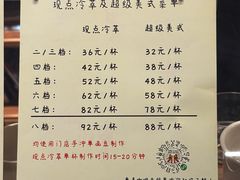 现点冷萃及超级美式菜单
现点冷萃 超级美式
二/三档: 36元/杯 32元/杯
四档: 42元/杯 38元/杯
五档: 52元/杯 48元/杯
六档: 62元/杯 58元/杯
七档: 82元/杯 78元/杯
八档: 92元/杯 88元/杯
均使用门店手冲单品豆制作
现点冷萃单杯制作时间15-20分钟